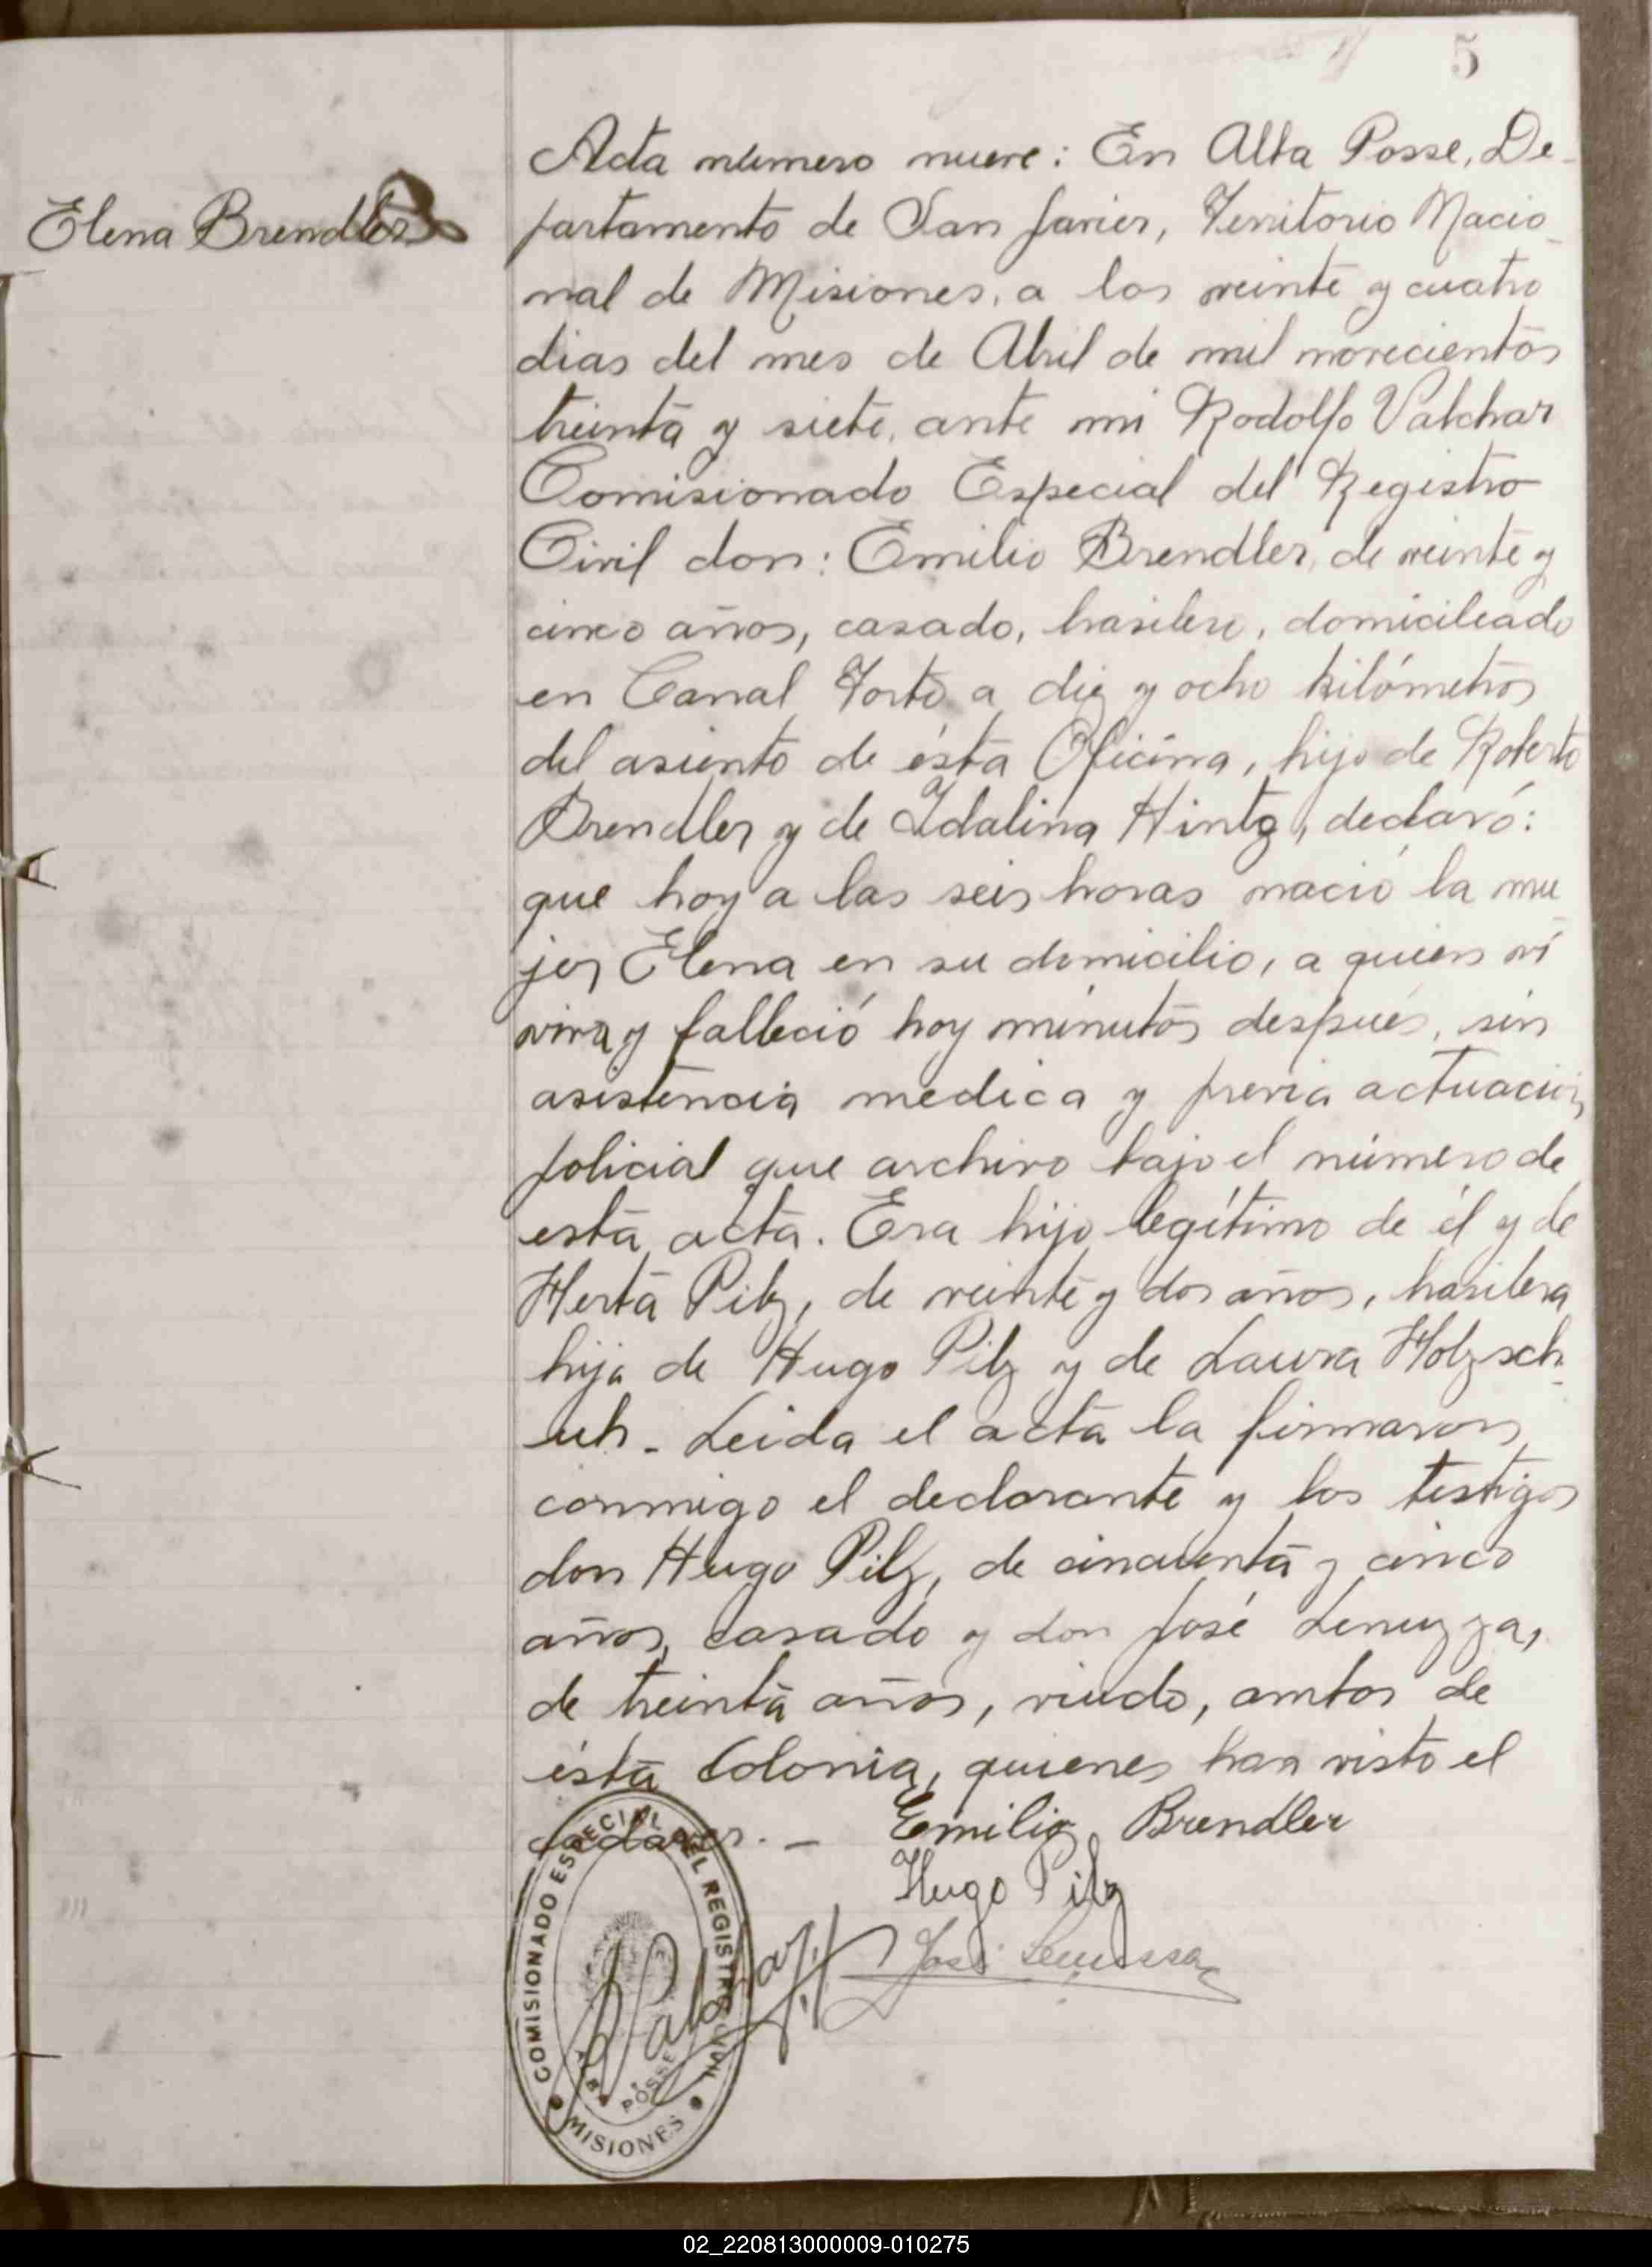 5
Elena Brendler
Acta número nueve: En Alba Posse, De-
partamento de San Javier, Territorio Nacio-
nal de Misiones, a los veinte y cuatro
dias del mes de Abril de mil novecientos
treinta y siete, ante mi Rodolfo Valchar
Comisionado Especial del Registro
Civil don: Emilio Brendler, de veinte y
cinco años, casado, brasilero, domicileado
en Canal Torto a diez y ocho kilómetros
del asiento de ésta Oficina, hijo de Roberto
Brendler y de Idalina Hintz, declaró:
que hoy a las seis horas nació la mu
jer Elena en su domicilio, a quien ví
viva y falleció hoy minutos después, sin
asistencia medica y previa actuación
policial que archivo bajo el número de
esta acta. Era hijo legítimo de él y de
Herta Pilz, de veinte y dos años, brasilera
hija de Hugo Pilz y de Laura Holzsch-
uh. Leida el acta la firmaron
conmigo el declarante y los testigos
don Hugo Pilz, de cincuenta y cinco
años, casado y don José Lenuzza,
de treinta años, viudo, ambos de
ésta Colonia, quienes han visto el
cadaver. -
Emilio Brendler
Hugo Pilz
José Lenussa
COMISIONADO ESPECIAL DEL REGISTRO CIVIL
ALBA POSSE
MISIONES
02_220813000009-010275